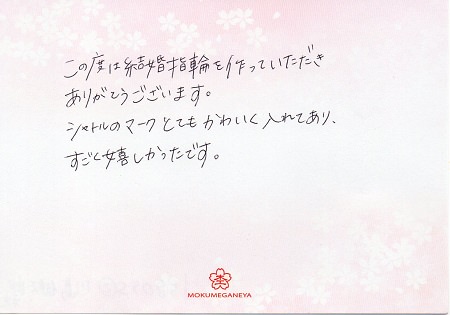 この度は結婚指輪を作っていただき
ありがとうございます。
シャトルのマークとてもかわいく入れてあり、
すごく嬉しかったです。
MOKUMEGANEYA